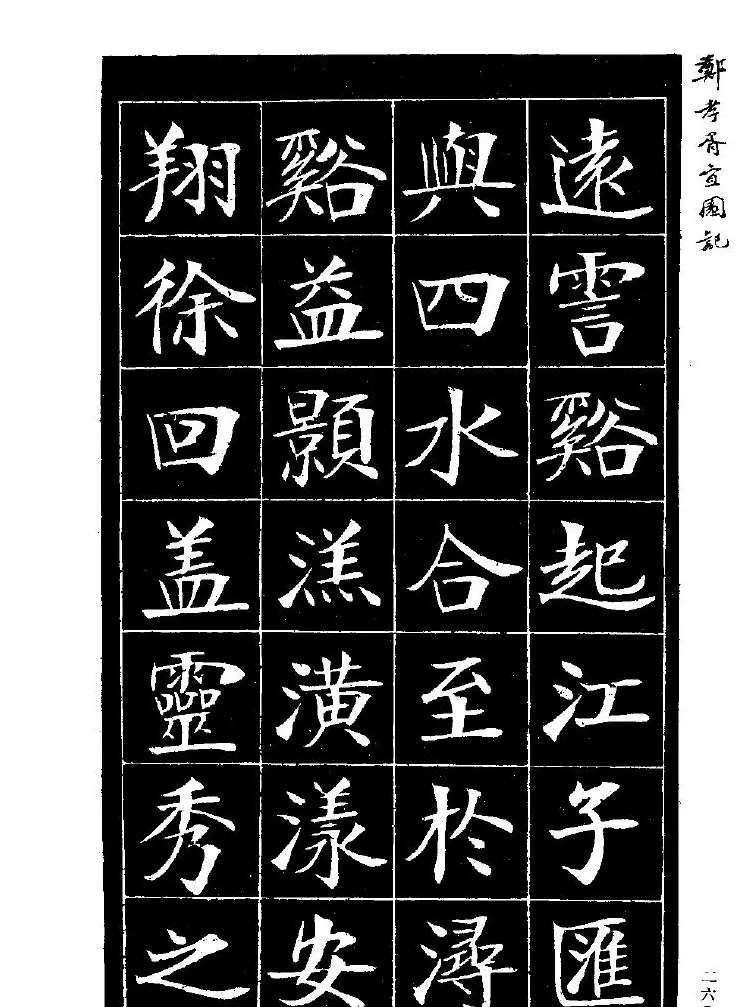 鄭孝胥宜園記
遠霅谿起江子匯
與四水合至於潯
谿益顥溔潢漾安
翔徐回盖靈秀之
二六